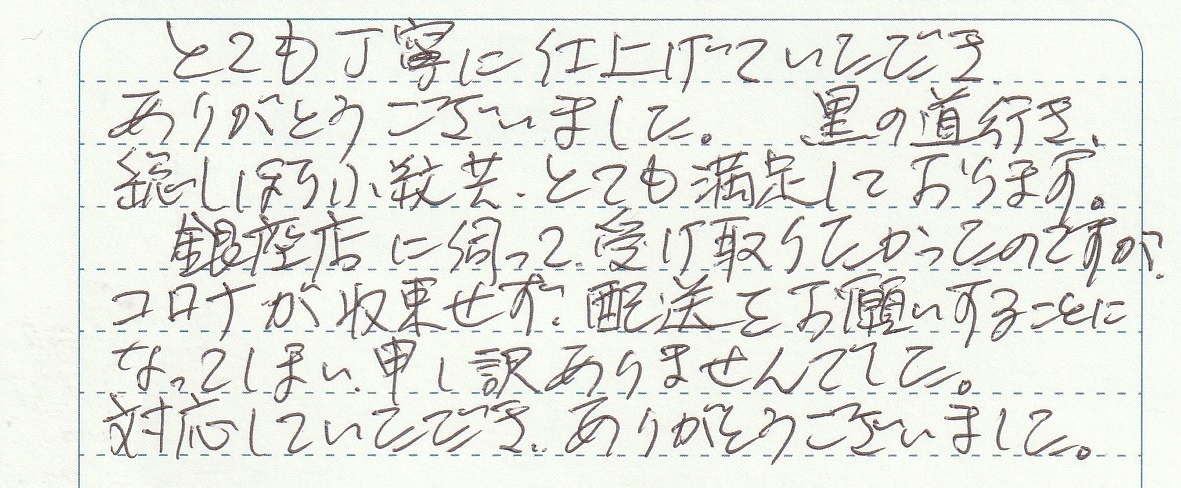 とても丁寧に仕上げていただき、
ありがとうございました。 黒の道行き、
総しぼり小紋共、とても満足しております。
銀座店に伺って、受け取りたかったのですが、
コロナが収束せず、配送をお願いすることに
なってしまい、申し訳ありませんでした。
対応していただき、ありがとうございました。